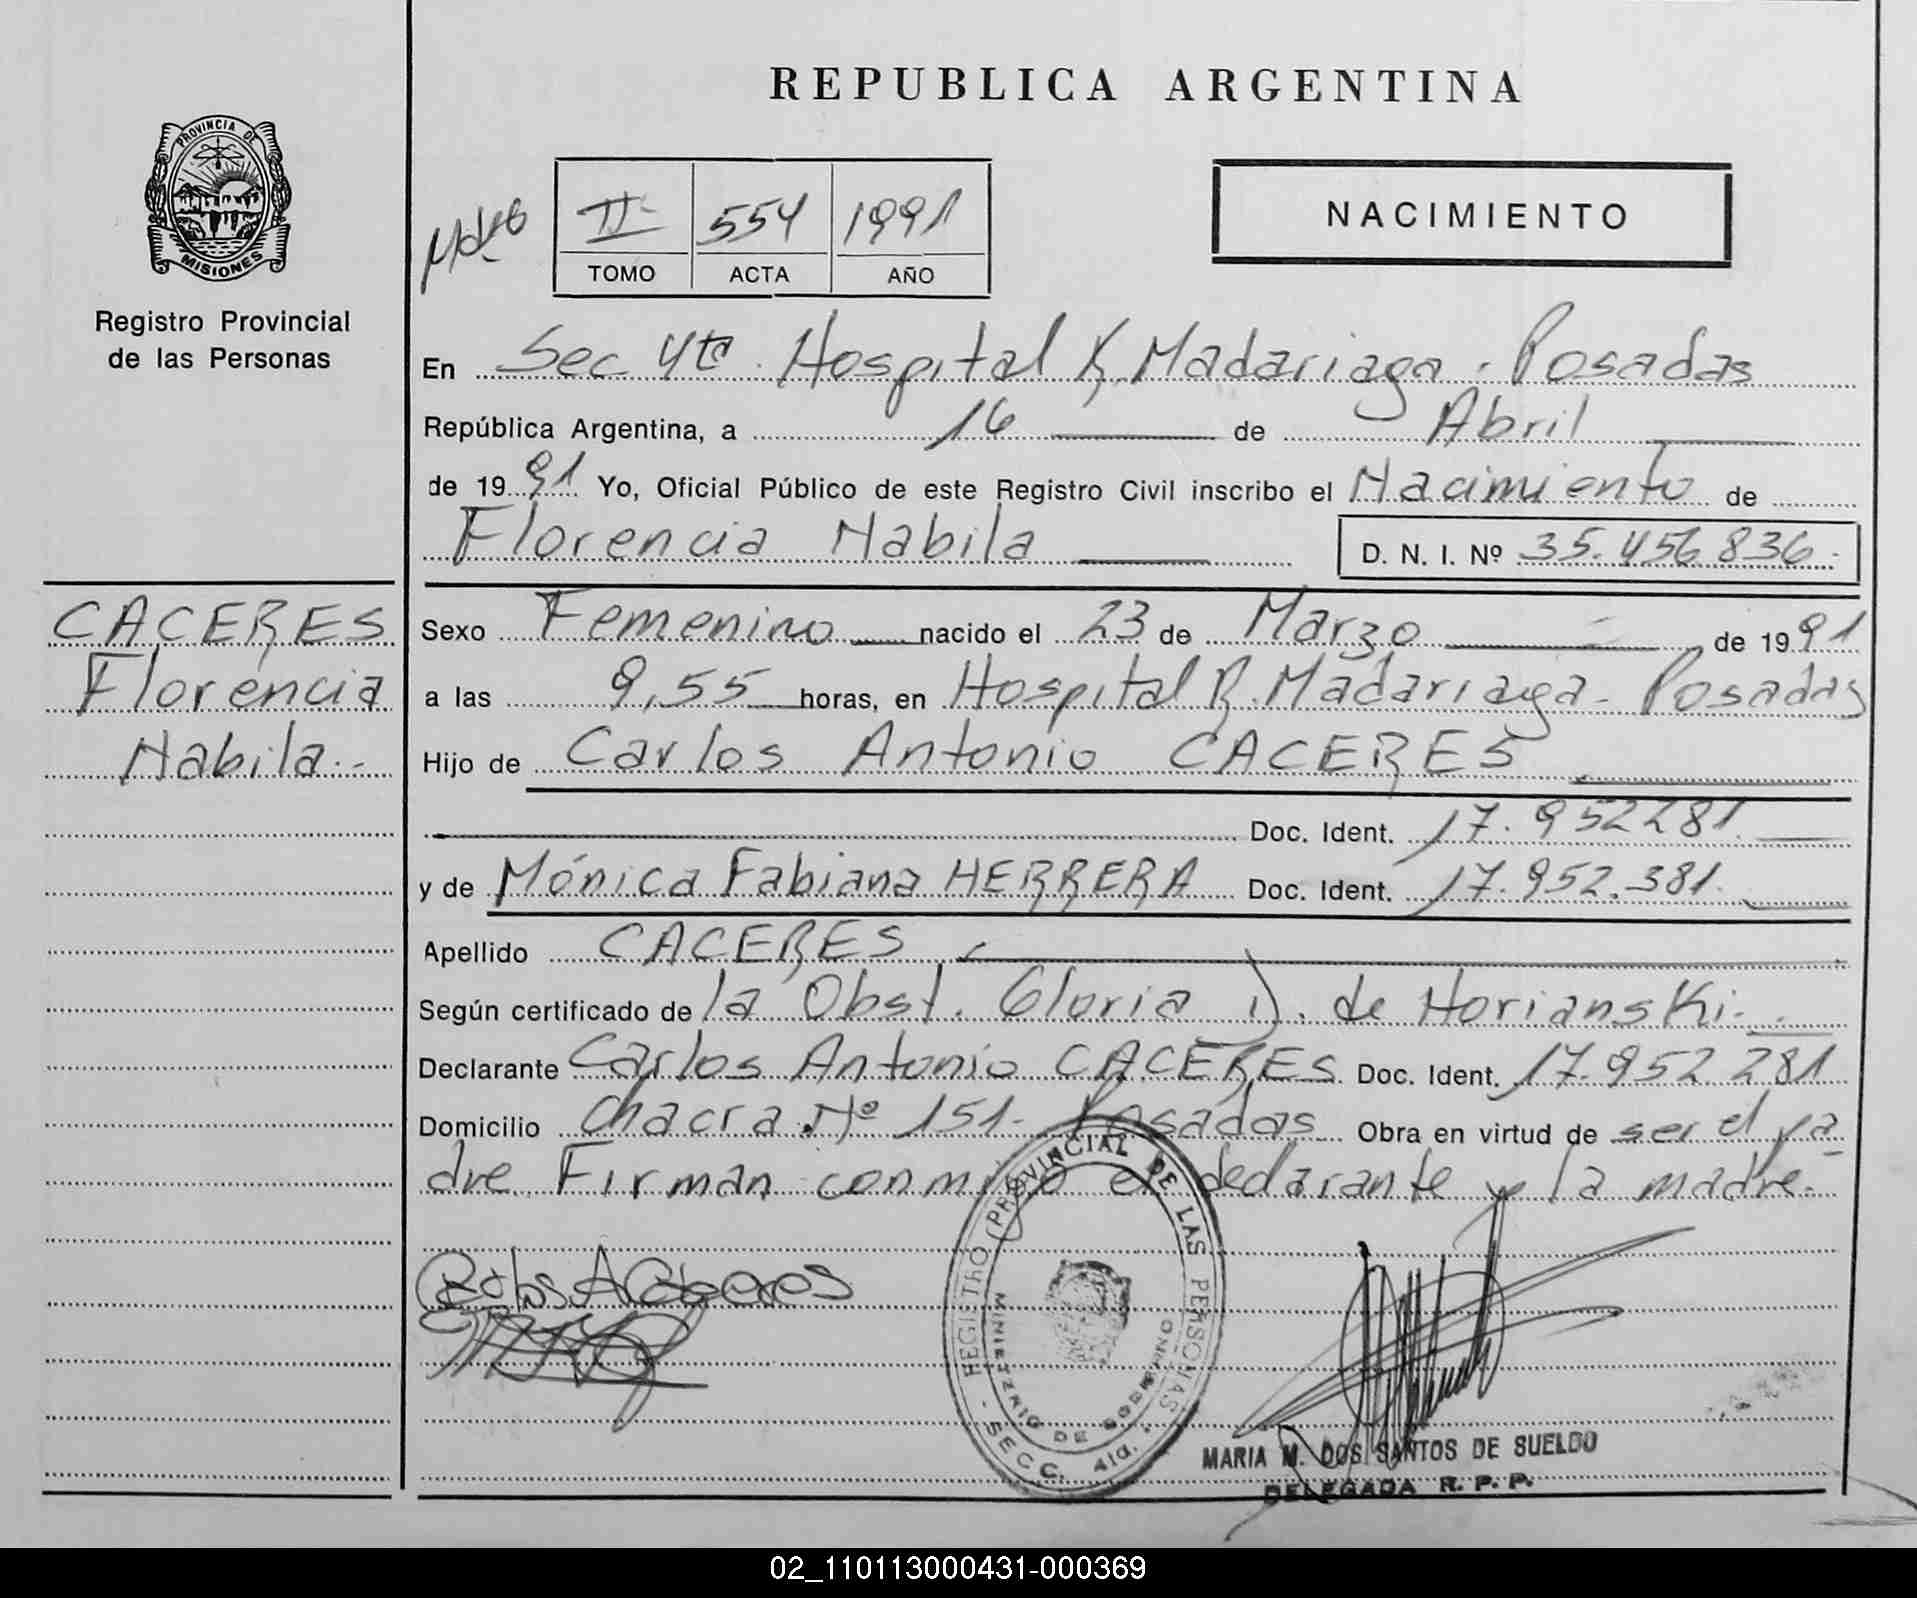 REPUBLICA ARGENTINA
PROVINCIA DE
MISIONES
Registro Provincial
de las Personas
II
554
1991
TOMO
ACTA
AÑO
NACIMIENTO
En Sec 4ta. Hospital R. Madariaga. Posadas
República Argentina, a 16 de Abril
de 1991 Yo, Oficial Público de este Registro Civil inscribo el Nacimiento de
Florencia Nabila
D. N. I. Nº 35.456836.
CACERES
Florencia
Nabila.-
Sexo Femenino nacido el 23 de Marzo de 1991
a las 9,55 horas, en Hospital R. Madariaga - Posadas
Hijo de Carlos Antonio CACERES
Doc. Ident. 17.952281.
y de Mónica Fabiana HERRERA Doc. Ident. 17.952.381.
Apellido CACERES
Según certificado de la Obst. Gloria D. de Horianski.-
Declarante Carlos Antonio CACERES Doc. Ident. 17.952281
Domicilio Chacra Nº 151- Posadas Obra en virtud de ser el pa
dre. Firman conmigo el declarante y la madre.
Carlos A Caceres
REGISTRO PROVINCIAL DE LAS PERSONAS
MINISTERIO DE GOBIERNO
- SECC. 4ta. -
MARIA M. DOS SANTOS DE SUELDO
DELEGADA R. P. P.
02_110113000431-000369